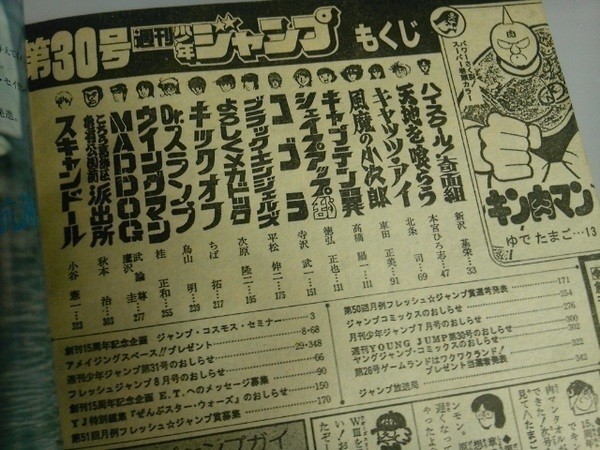 第30号 週刊少年ジャンプ もくじ
パワーさく裂!
スーパー拳激カラー!
肉
キン肉マン
ゆでたまご…13
ハイスクール!奇面組 新沢基栄…33
天地を喰らう 本宮ひろ志…47
キャッツ♥アイ 北条司…69
風魔の小次郎 車田正美…91
キャプテン翼 高橋陽一…111
シェイプアップ乱 徳弘正也…131
コブラ 寺沢武一…151
ブラック・エンジェルズ 平松伸二…175
よろしくメカドック 次原隆二…195
キックオフ ちば拓…217
Dr.スランプ 鳥山明…239
ウイングマン 桂正和…255
MAD DOG 武論尊 鷹沢圭…277
こちら葛飾区亀有公園前派出所 秋本治…303
スキャンドール 小谷憲一…323
創刊15周年記念企画 ジャンプ・コスモス・セミナー 3
アメイジングスペース!!プレゼント 8・68
週刊少年ジャンプ第31号のおしらせ 29・348
フレッシュジャンプ8月号のおしらせ 66
創刊15周年記念企画 E.T.へのメッセージ募集 90
YJ特別編集「ぜんぶスター・ウォーズ」のおしらせ 150
第51回月例フレッシュ☆ジャンプ賞募集 170
第50回月例フレッシュ☆ジャンプ賞選考発表 171
ジャンプコミックスのおしらせ 254
月刊少年ジャンプ7月号のおしらせ 276
週刊YOUNG JUMP第30号のおしらせ 300
ヤングジャンプ・コミックスのおしらせ 302
第26号ゲームランドはワクワクランド!
プレゼント当選者発表 322
ジャンプ放送局 342